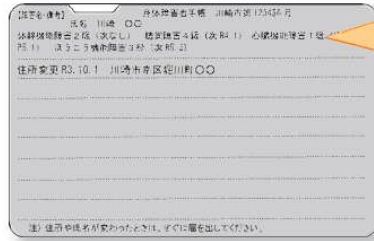 【障害名・備考】 身体障害者手帳 川崎市第123456号
氏名 川崎 〇〇
体幹機能障害2級（次なし） 聴覚障害4級（次R4.1） 心臓機能障害1級
R5.1） ぼうこう機能障害3級（次R5.2）
住所変更 R3.10.1 川崎市幸区堀川町〇〇
注）住所や氏名が変わったときは、すぐに届を出してください。